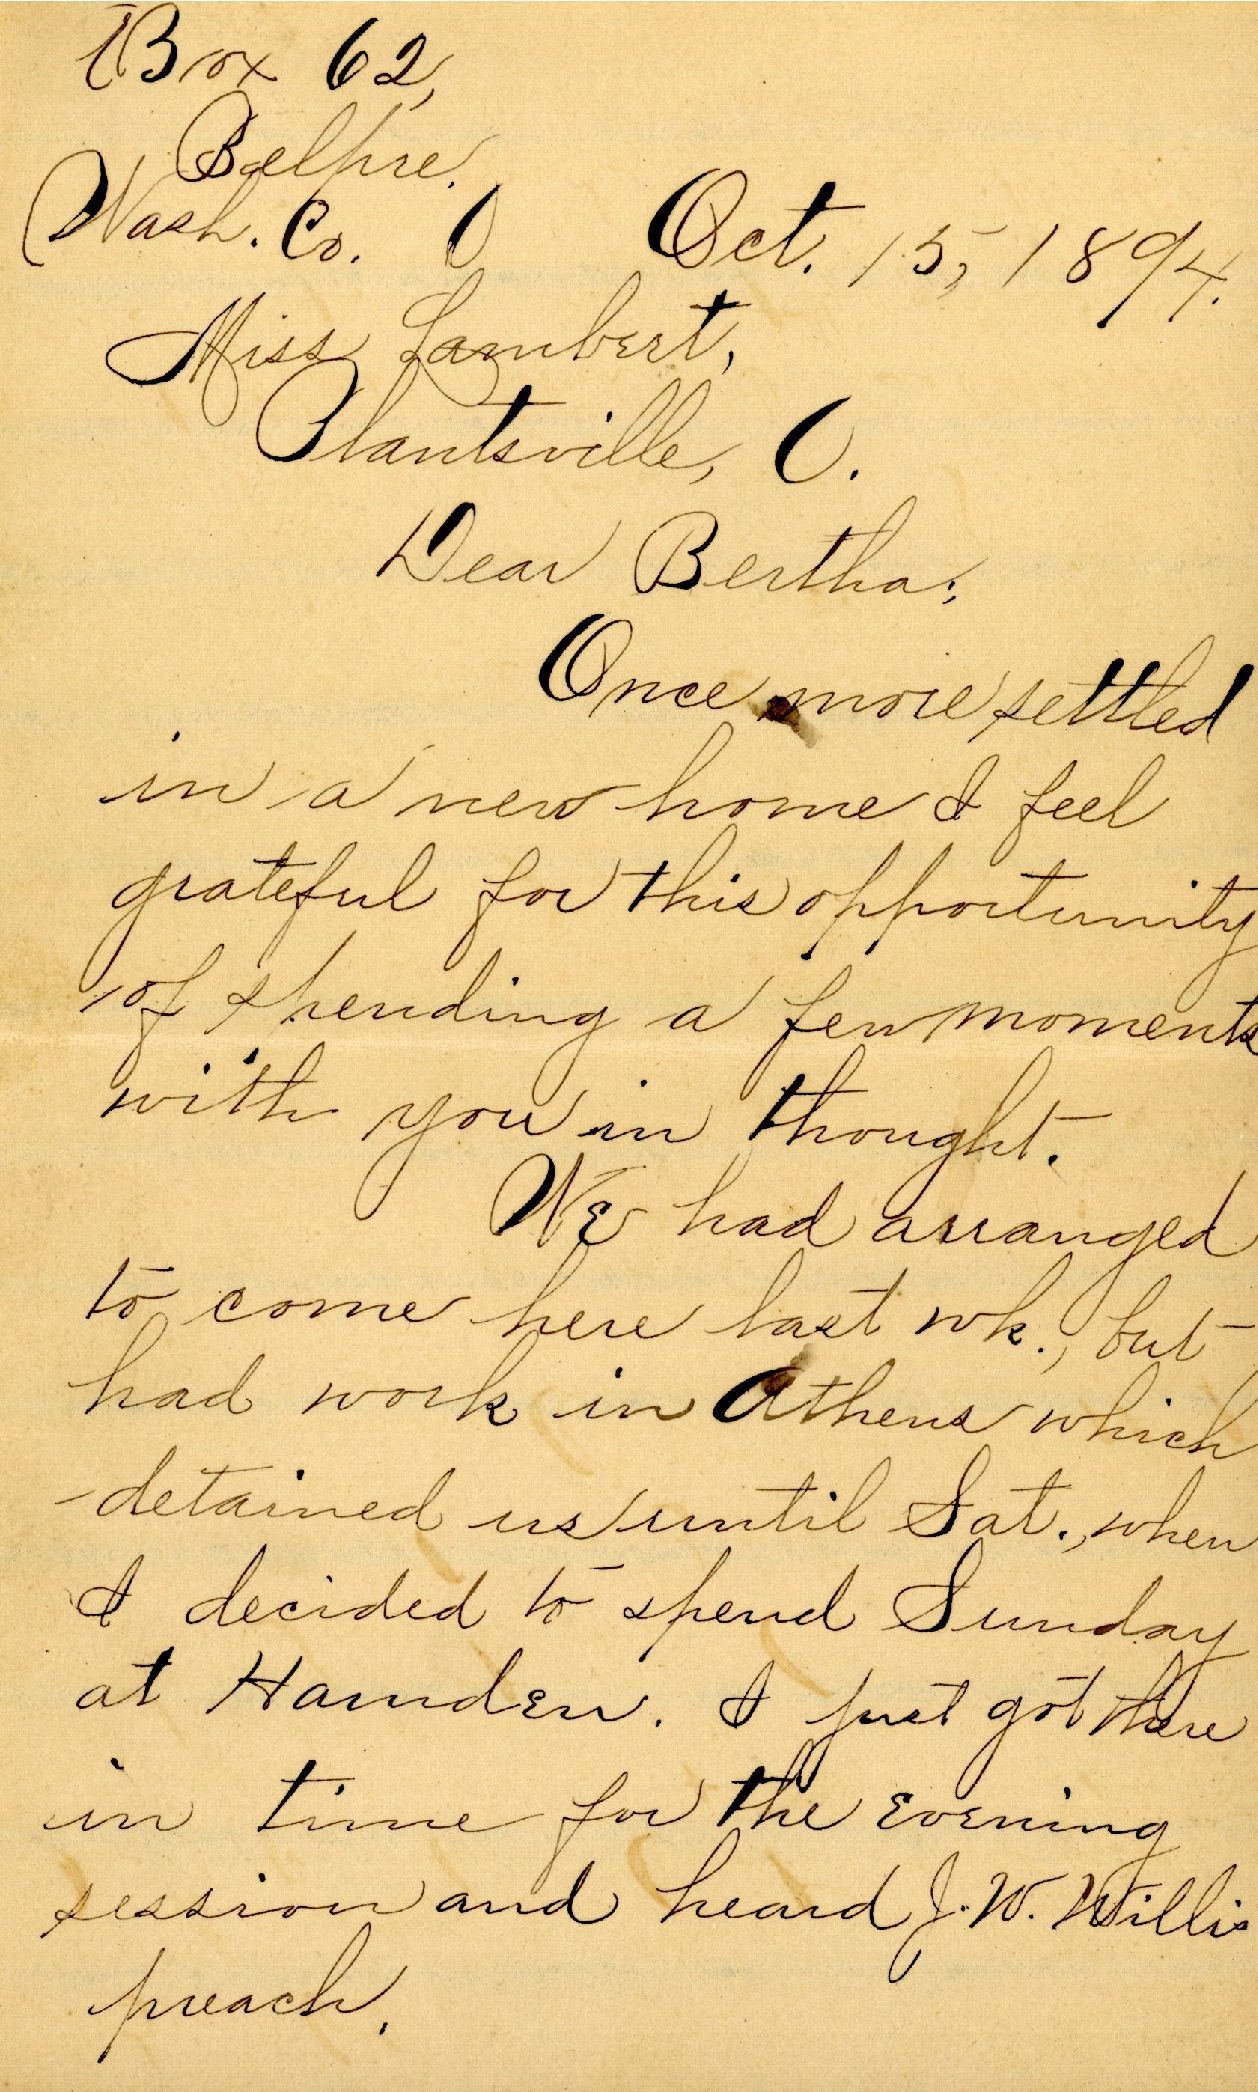 Box 62,
Belpre.
Wash. Co. O Oct. 15, 1894.
Miss Lambert,
Plantsville, O.
Dear Bertha;
Once more settled
in a new home I feel
grateful for this opportunity
of spending a few moments
with you in thought.
We had arranged
to come here last wk., but
had work in Athens which
detained us until Sat., when
I decided to spend Sunday
at Hamden. I just got there
in time for the evening
session and heard J. W. Willis
preach.